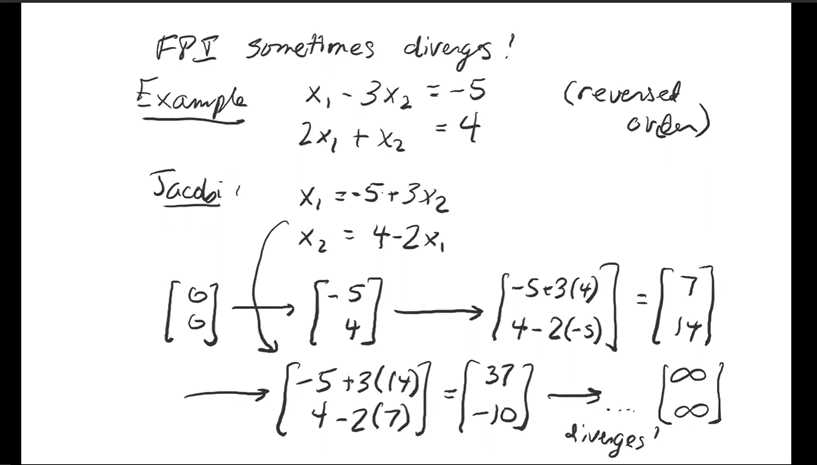 FPI sometimes diverges!
Example x₁ - 3x₂ = -5 (reversed
2x₁ + x₂ = 4 order)
Jacobi: x₁ = -5+3x₂
x₂ = 4-2x₁
[0 0] → [-5 4] → [-5+3(4) 4-2(-5)] = [7 14]
→ [-5+3(14) 4-2(7)] = [37 -10] → .... [∞ ∞]
diverges!